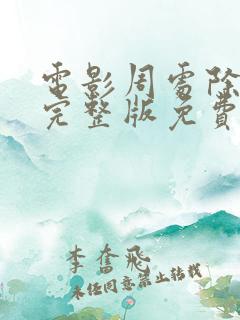 電影周處除
完整版免費
李奮飛
未經同意禁止轉載